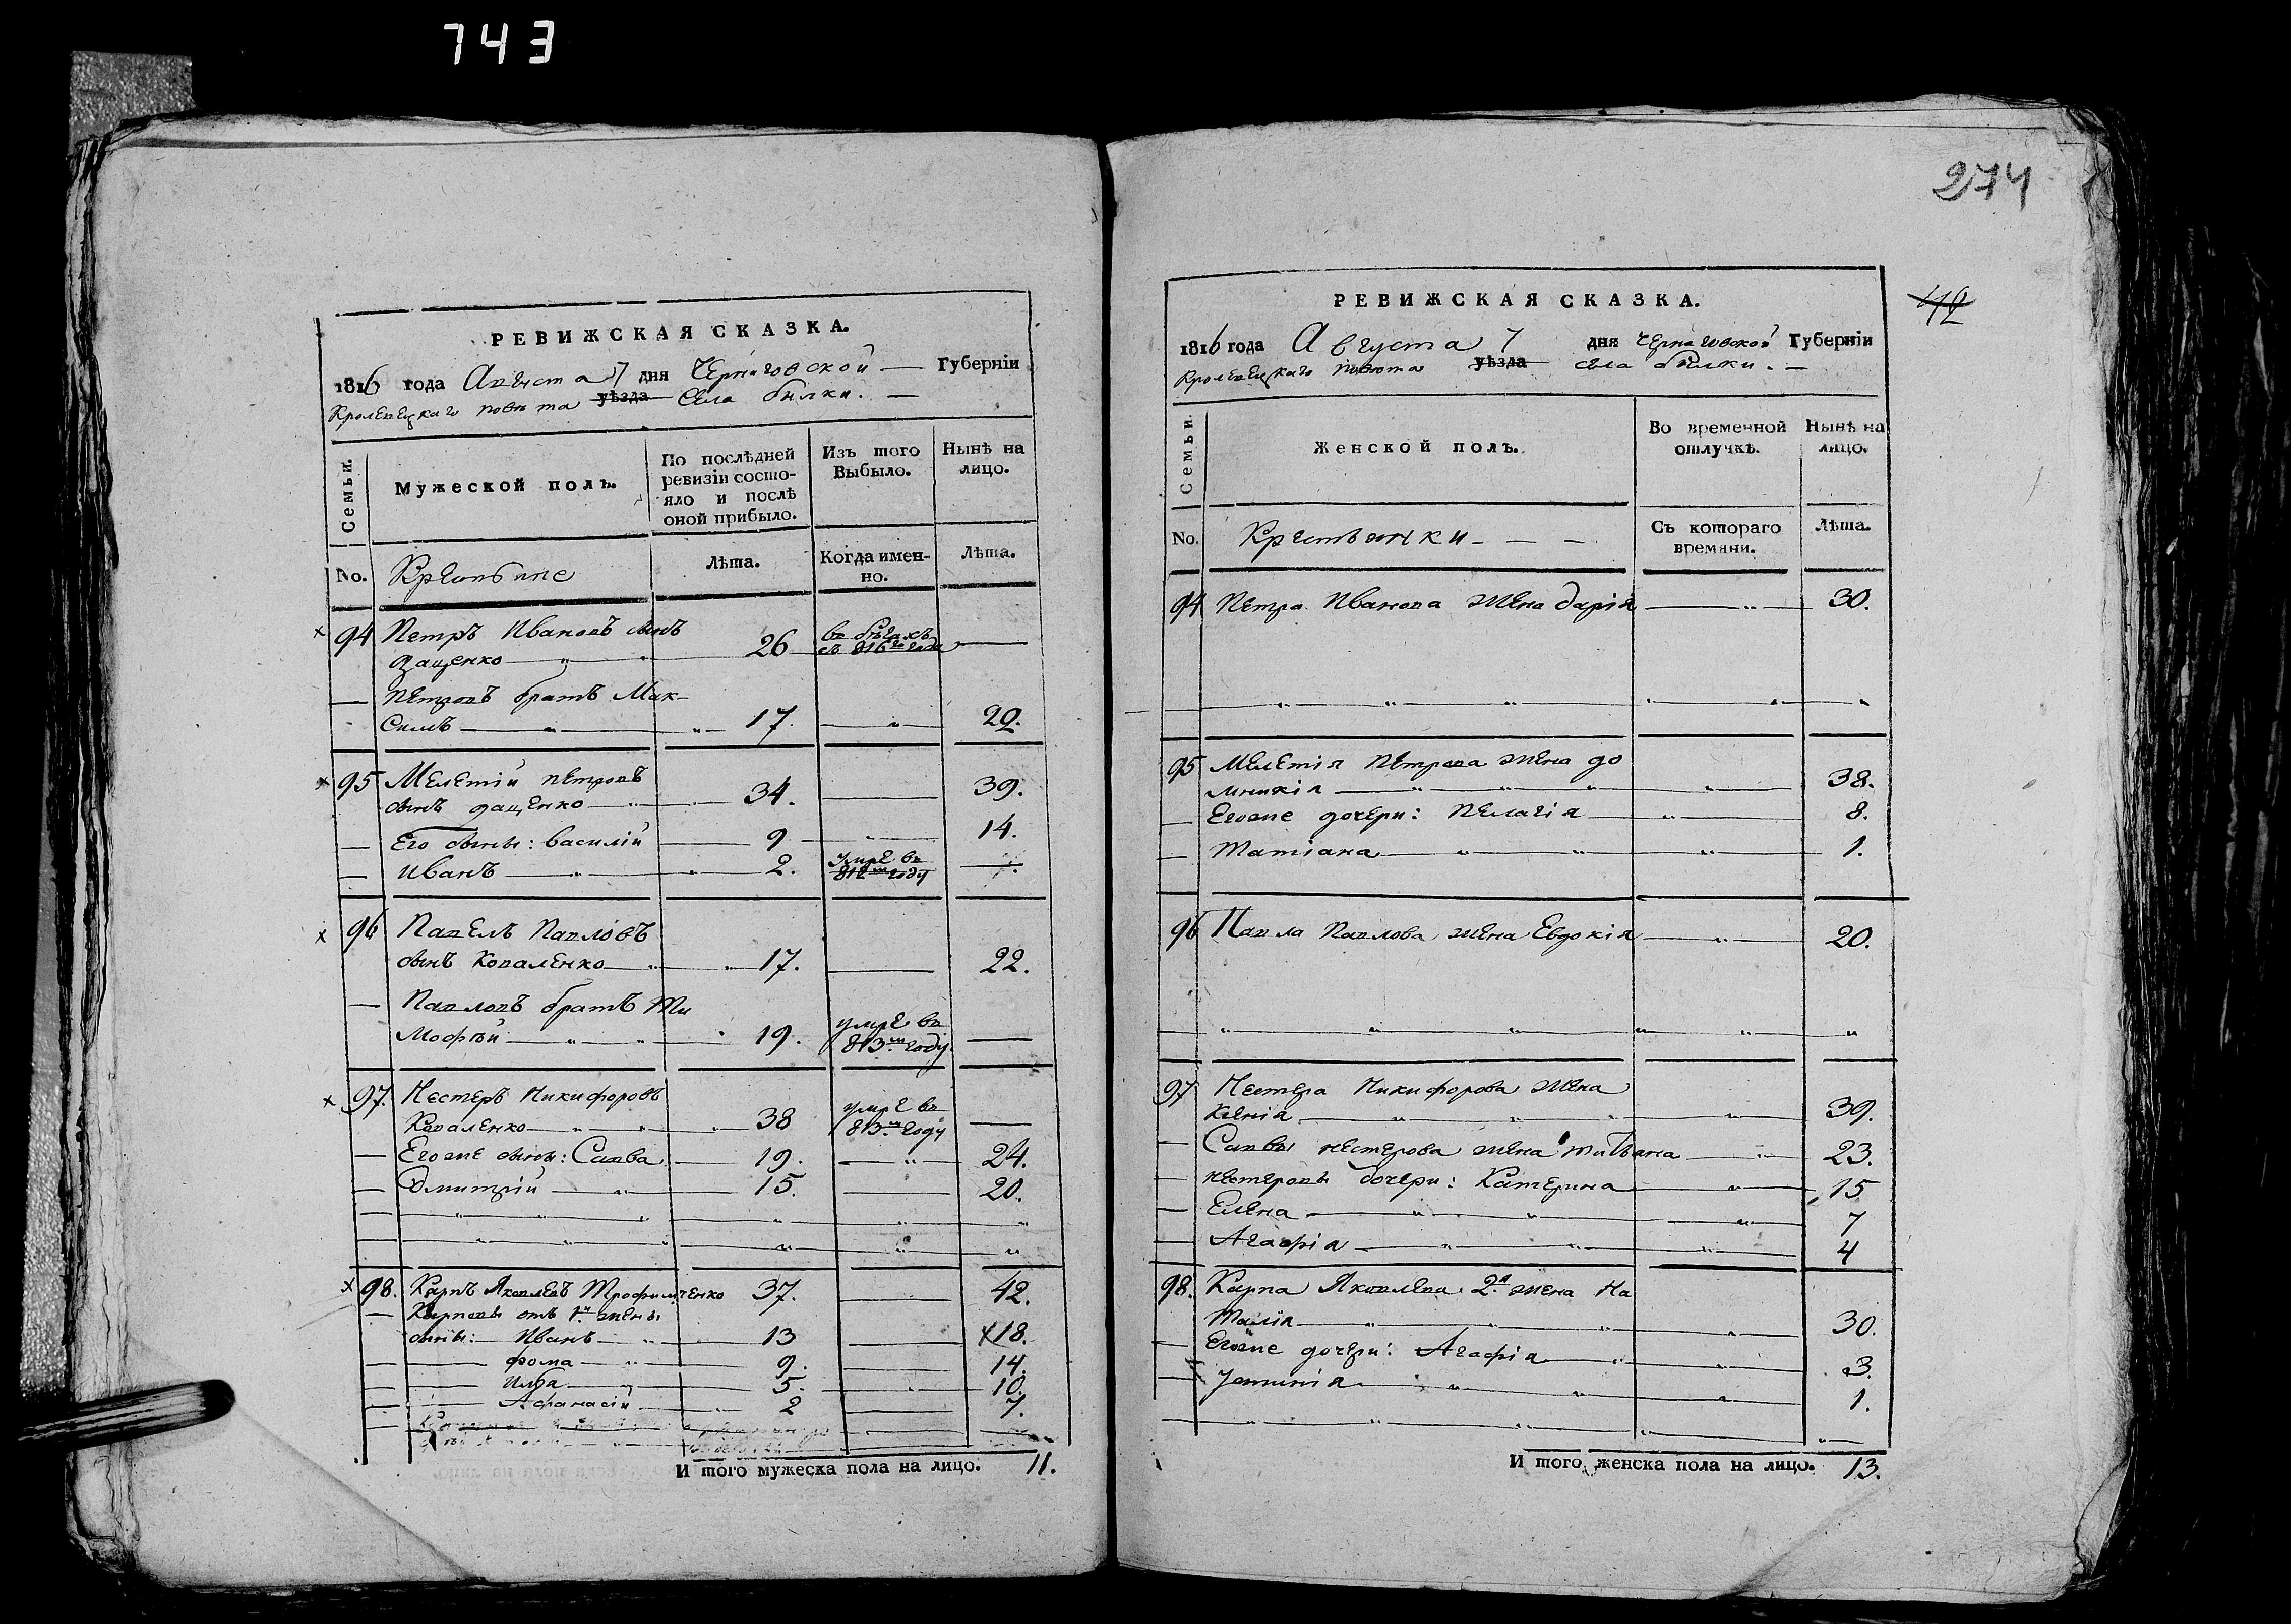 743
274
РЕВИЖСКАЯ СКАЗКА.
1816 года Августа 7 дня Черниговской — Губерніи
Кролевецкаго повета уѣзда Села билки. —
Семьи.
Мужеской полъ.
По послѣдней ревизіи состо-
яло и послѣ
оной прибыло.
Изъ того
Выбыло.
Нынѣ на
лицо.
No. Крестьяне
Лѣта.
Когда имен-
но.
Лѣта.
94 Петръ Ивановъ сынъ
Ященко — 26 въ бѣгахъ
съ 816го года —
— Петровъ братъ Мак-
Симъ — 17. — 22.
95 Мелетій Петровъ
сынъ Ященко — 34. — 39.
— Его сыны: Василій — 9 — 14.
— Иванъ — 2. умре въ
812м году —
96 Павелъ Павловъ
сынъ Коваленко — 17. — 22.
— Павловъ братъ Ти
Мофѣй — 19. умре въ
813.м году —
97. Нестеръ Никифоровъ
Коваленко — 38 умре въ
813.м году —
— Егоже сыны: Савва — 19. — 24.
— Дмитрій — 15. — 20.
98. Карпъ Яковлевъ Трофимченко 37. — 42.
— Карповы отъ 1й жены
сыны: Иванъ — 13 — 18.
— Фома — 9. — 14.
— Илья — 5. — 10.
— Афанасій — 2 — 7.
И того мужеска пола на лицо. 11.
РЕВИЖСКАЯ СКАЗКА.
1816 года Августа 7 дня Черниговской Губерніи
Кролевецкаго повета уѣзда села билки. —
Семьи.
Женской полъ.
Во временной
отлучкѣ.
Нынѣ на
лицо.
No. Крестьянки — — —
Съ котораго
времяни.
Лѣта.
94 Петра Иванова жена Дарія — 30.
95 Мелетія Петрова жена До
мникія — 38.
— Егоже дочери: Пелагія — 8.
— Татіана — 1.
96 Павла Павлова жена Евдокія — 20.
97 Нестера Никифорова жена
Ксенія — 39.
— Саввы Нестерова жена Татьяна — 23.
— Нестеровы дочери: Катерина — 15
— Елена — 7
— Агафія — 4
98. Карпа Яковлева 2.я жена На
талія — 30.
— Егоже дочери: Агафія — 3.
— Устинія — 1.
И того женска пола на лицо. 13.